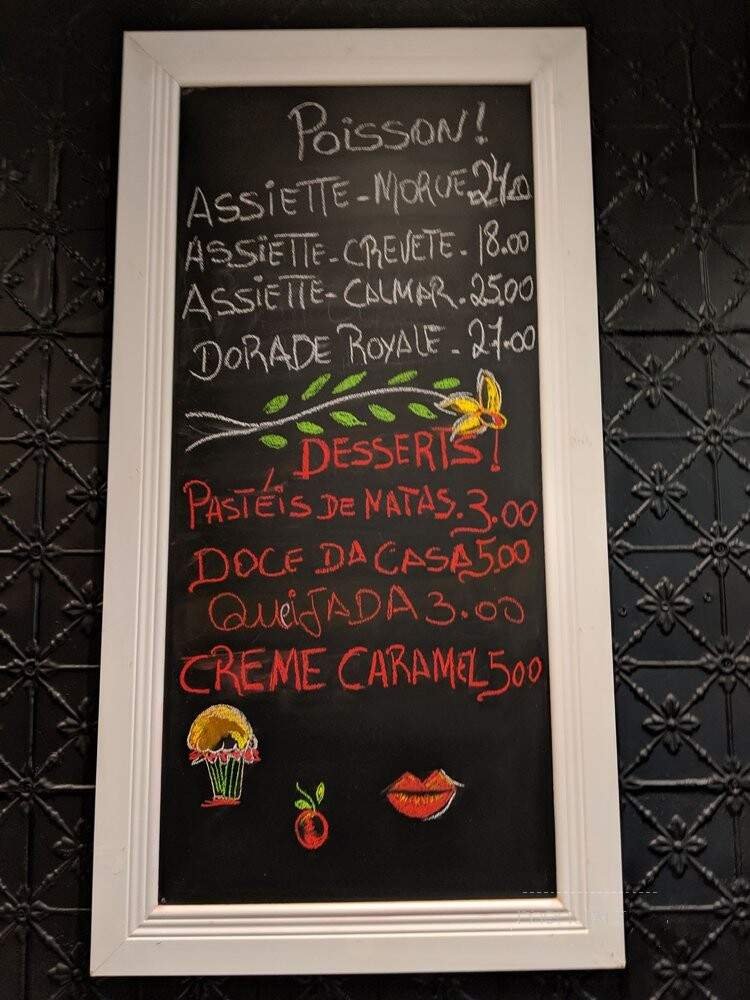 POISSON!
ASSIETTE-MORUE.24.00
ASSIETTE-CREVETE-18.00
ASSIETTE-CALMAR.25.00
DORADE ROYALE-27.00
DESSERTS!
PASTÉIS DE NATAS.3.00
DOCE DA CASA 5.00
QUEIJADA 3.00
CREME CARAMEL 5.00